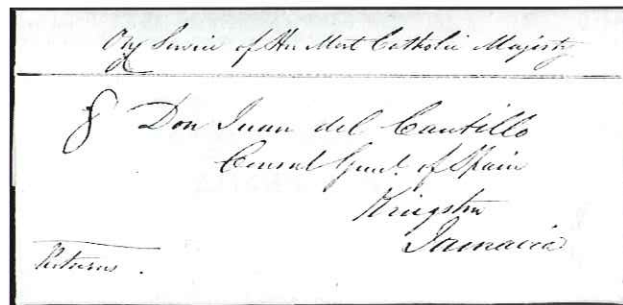 On Service of Her Most Catholic Majesty
8 Don Juan del Castillo
Consul Genl. of Spain
Kingston
Jamaica
Returns.